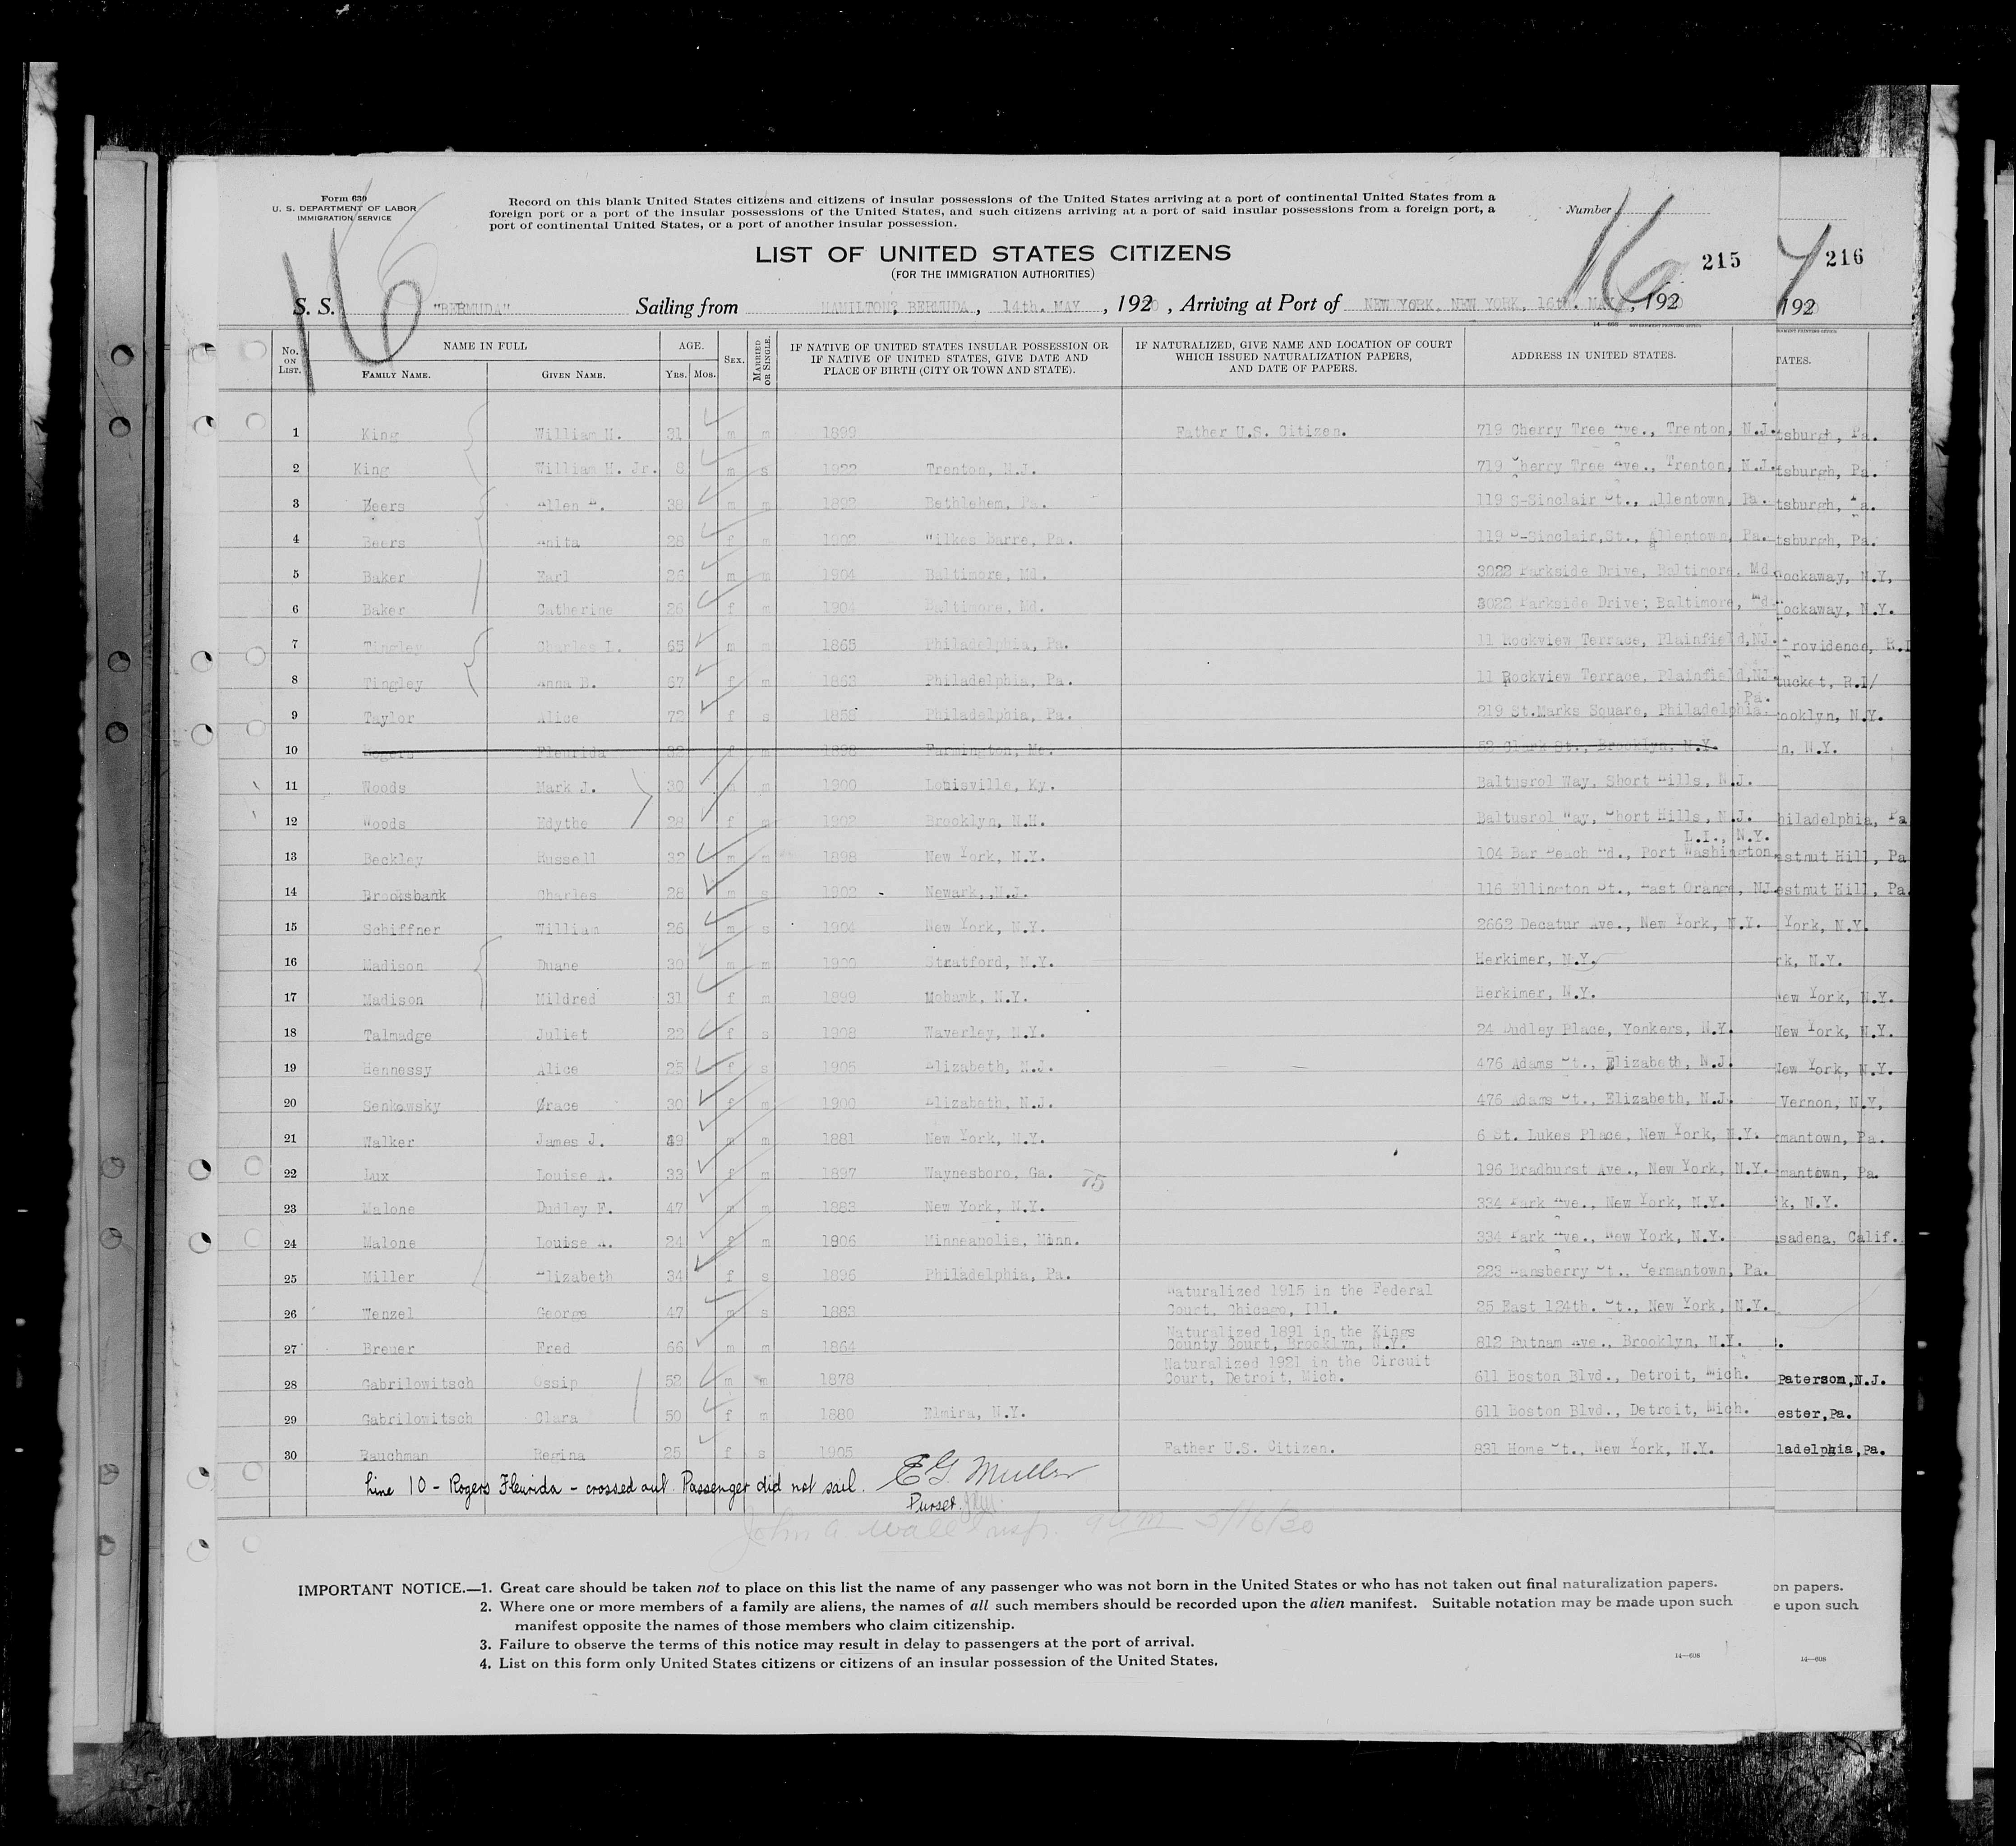 Form 630
U. S. DEPARTMENT OF LABOR
IMMIGRATION SERVICE
16
Record on this blank United States citizens and citizens of insular possessions of the United States arriving at a port of continental United States from a
foreign port or a port of the insular possessions of the United States, and such citizens arriving at a port of said insular possessions from a foreign port, a
port of continental United States, or a port of another insular possession.
Number
16
LIST OF UNITED STATES CITIZENS
(FOR THE IMMIGRATION AUTHORITIES)
215
216
S. S. "BERMUDA" Sailing from HAMILTON, BERMUDA, 14th. MAY, 1920, Arriving at Port of NEW YORK, NEW YORK, 16th. MAY, 1920
192
No. ON LIST. NAME IN FULL FAMILY NAME. GIVEN NAME. AGE. YRS. MOS. SEX. MARRIED OR SINGLE. IF NATIVE OF UNITED STATES INSULAR POSSESSION OR IF NATIVE OF UNITED STATES, GIVE DATE AND PLACE OF BIRTH (CITY OR TOWN AND STATE). IF NATURALIZED, GIVE NAME AND LOCATION OF COURT WHICH ISSUED NATURALIZATION PAPERS, AND DATE OF PAPERS. ADDRESS IN UNITED STATES. TATES.
1 King William H. 31 m m 1899 Father U.S. Citizen. 719 Cherry Tree Ave., Trenton, N.J. tsburgh, Pa.
2 King William H. Jr. 8 m s 1922 Trenton, N.J. 719 Cherry Tree Ave., Trenton, N.J. tsburgh, Pa.
3 Beers Allen 38 m m 1892 Bethlehem, Pa. 119 S-Sinclair St., Allentown, Pa. tsburgh, Pa.
4 Beers Anita 28 f m 1902 Wilkes Barre, Pa. 119 S-Sinclair,St., Allentown, Pa. tsburgh, Pa.
5 Baker Earl 26 m m 1904 Baltimore, Md. 3022 Parkside Drive, Baltimore, Md. ockaway, N.Y,
6 Baker Catherine 26 f m 1904 Baltimore, Md. 3022 Parkside Drive; Baltimore, Md. ockaway, N.Y.
7 Tingley Charles L. 65 m m 1865 Philadelphia, Pa. 11 Rockview Terrace, Plainfield,NJ. Providence, R.I
8 Tingley Anna B. 67 f m 1863 Philadelphia, Pa. 11 Rockview Terrace, Plainfield,NJ. tucket, R.I/
9 Taylor Alice 72 f s 1858 Philadelphia, Pa. 219 St.Marks Square, Philadelphia. Pa. ooklyn, N.Y.
10 Rogers Fleurida 32 f m 1898 Farmington, Me. 52 Clark St., Brooklyn, N.Y. n, N.Y.
11 Woods Mark J. 30 m m 1900 Louisville, Ky. Baltusrol Way, Short Hills, N.J.
12 Woods Edythe 28 f m 1902 Brooklyn, N.H. Baltusrol Way, Short Hills, N.J. hiladelphia, Pa
13 Beckley Russell 32 m m 1898 New York, N.Y. 104 Bar Beach Rd., Port Washington, L.I., N.Y. estnut Hill, Pa
14 Brooksbank Charles 28 m s 1902 Newark,,N.J. 116 Ellington St., East Orange, NJ. estnut Hill, Pa.
15 Schiffner William 26 m s 1904 New York, N.Y. 2662 Decatur Ave., New York, N.Y. York, N.Y.
16 Madison Duane 30 m m 1900 Stratford, N.Y. Herkimer, N.Y. rk, N.Y.
17 Madison Mildred 31 f m 1899 Mohawk, N.Y. Herkimer, N.Y. New York, N.Y.
18 Talmadge Juliet 22 f s 1908 Waverley, N.Y. 24 Dudley Place, Yonkers, N.Y. New York, N.Y.
19 Hennessy Alice 25 f s 1905 Elizabeth, N.J. 476 Adams St., Elizabeth, N.J. New York, N.Y.
20 Senkowsky Grace 30 f m 1900 Elizabeth, N.J. 476 Adams St., Elizabeth, N.J. Vernon, N.Y,
21 Walker James J. 49 m m 1881 New York, N.Y. 6 St. Lukes Place, New York, N.Y. rmantown, Pa.
22 Lux Louise A. 33 f m 1897 Waynesboro, Ga. 75 196 Bradhurst Ave., New York, N.Y. rmantown, Pa.
23 Malone Dudley F. 47 m m 1883 New York, N.Y. 334 Park Ave., New York, N.Y. k, N.Y.
24 Malone Louise A. 24 f m 1906 Minneapolis, Minn. 334 Park Ave., New York, N.Y. sadena, Calif.
25 Miller Elizabeth 34 f s 1896 Philadelphia, Pa. 223 Hansberry St., Germantown, Pa.
26 Wenzel George 47 m s 1883 Naturalized 1915 in the Federal Court, Chicago, Ill. 25 East 124th. St., New York, N.Y.
27 Breuer Fred 66 m m 1864 Naturalized 1891 in the Kings County Court, Brooklyn, N.Y. 812 Putnam Ave., Brooklyn, N.Y.
28 Gabrilowitsch Ossip 52 m m 1878 Naturalized 1921 in the Circuit Court, Detroit, Mich. 611 Boston Blvd., Detroit, Mich. Paterson,N.J.
29 Gabrilowitsch Clara 50 f m 1880 Elmira, N.Y. 611 Boston Blvd., Detroit, Mich. ester,Pa.
30 Rauchman Regina 25 f s 1905 Father U.S. Citizen. 831 Home St., New York, N.Y. ladelphia,Pa.
Line 10 - Rogers Fleurida - crossed out. Passenger did not sail. E G Muller
Purser.
John A. Wall Insp. 9 am 5/16/30
IMPORTANT NOTICE.—1. Great care should be taken not to place on this list the name of any passenger who was not born in the United States or who has not taken out final naturalization papers. on papers.
2. Where one or more members of a family are aliens, the names of all such members should be recorded upon the alien manifest. Suitable notation may be made upon such e upon such
manifest opposite the names of those members who claim citizenship.
3. Failure to observe the terms of this notice may result in delay to passengers at the port of arrival.
4. List on this form only United States citizens or citizens of an insular possession of the United States.
14—608
14—608